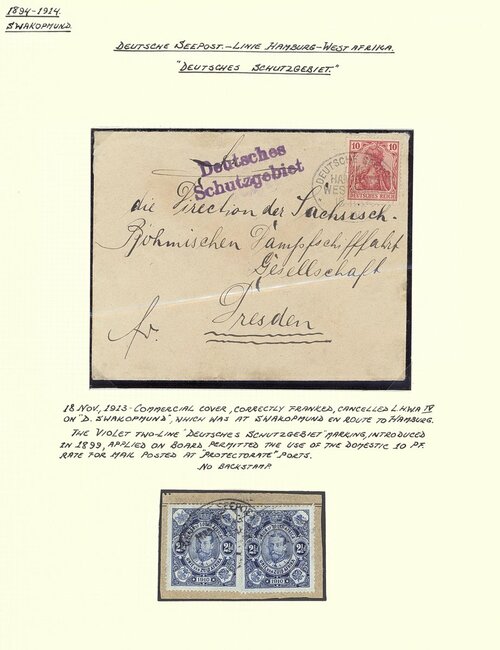 1894-1914.
SWAKOPMUND.
DEUTSCHE SEEPOST.-LINIE HAMBURG-WEST AFRIKA.
"DEUTSCHES SCHUTZGEBIET."
Deutsches
Schutzgebiet
10 10
DEUTSCHES REICH
DEUTSCHE
HA
WEST
die Direction der Sächsisch-
Böhmischen Dampfschifffahrt
Gesellschaft
fr. Dresden
18 NOV, 1913-COMMERCIAL COVER, CORRECTLY FRANKED, CANCELLED LHWA IV
ON "D. SWAKOPMUND", WHICH WAS AT SWAKOPMUND EN ROUTE TO HAMBURG.
THE VIOLET TWO-LINE "DEUTSCHES SCHUTZGEBIET" MARKING, INTRODUCED
IN 1899, APPLIED ON BOARD PERMITTED THE USE OF THE DOMESTIC 10 PF.
RATE FOR MAIL POSTED AT "PROTECTORATE" PORTS.
NO BACKSTAMP.
2½ 2½ 2½ 2½
1910 1910